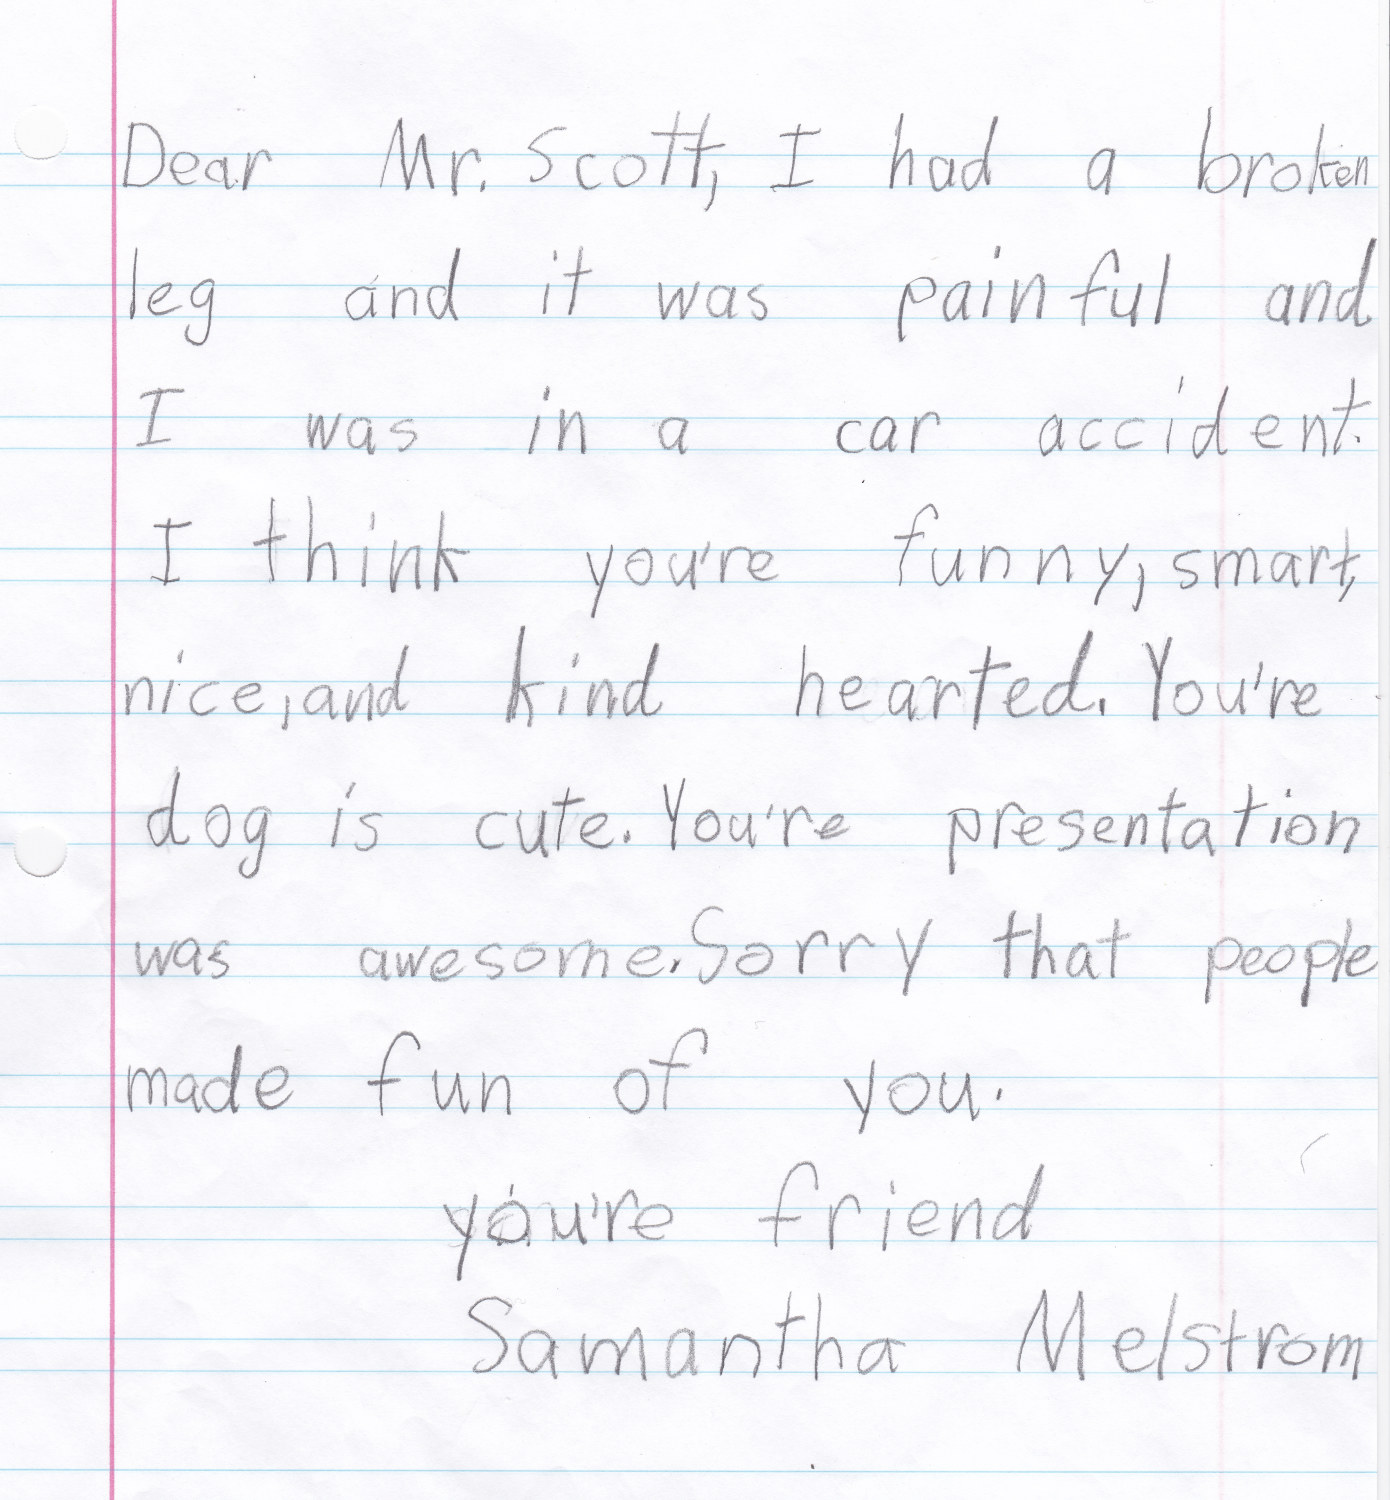 Dear Mr. Scott, I had a broken
leg and it was painful and
I was in a car accident.
I think you're funny, smart,
nice, and kind hearted. You're
dog is cute. You're presentation
was awesome. Sorry that people
made fun of you.
you're friend
Samantha Melstrom